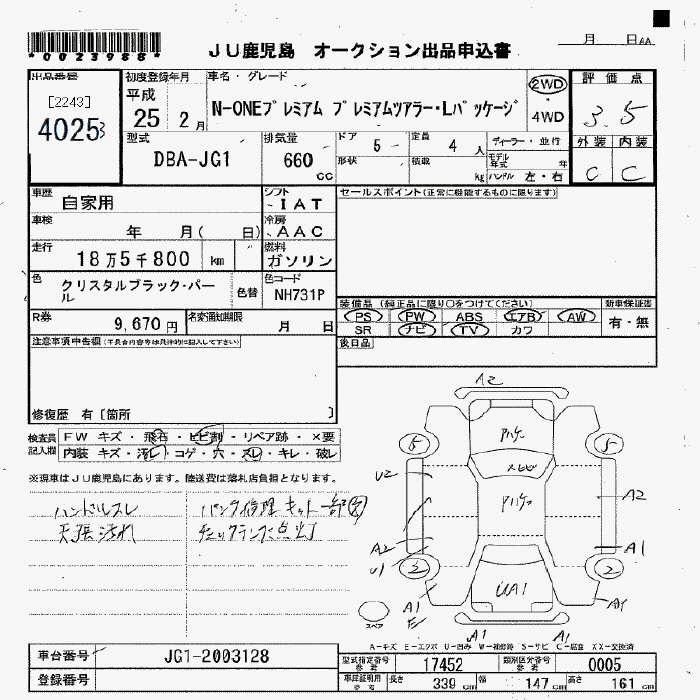 *0023988*
JU鹿児島 オークション出品申込書
月 日AA
出品番号
[2243]
40253
初度登録年月
平成
25 2月
車名・グレード
N-ONEプレミアム プレミアムツアラー・Lパッケージ
2WD
・
4WD
評価点
3.5
外装 内装
C C
型式
DBA-JG1
排気量
660
cc
ドア 5 -
形状
定員 4 人
積載 kg
ディーラー・並行
モデル年式 年
ハンドル 左・右
車歴 自家用
シフト
-IAT
セールスポイント(正常に機能するものに限ります)
車検 年 月( 日)
冷房
AAC
走行 18万5千800 km
燃料
ガソリン
色 クリスタルブラック・パール
色替
色コード
NH731P
装備品(純正品に限り○をつけてください)
新車保証書
PS PW ABS エアB AW
有・無
SR ナビ TV カワ
R券 9,670円
名変通知期限 月 日
後日品
注意事項申告欄(不具合内容等は具体的に記入して下さい)
修復歴 有〔箇所 〕
検査員記入欄
FW キズ・飛石・ヒビ割・リペア跡・×要
内装 キズ・汚レ・コゲ・穴・スレ・キレ・破レ
※現車はJU鹿児島にあります。陸送費は落札店負担となります。
ハンドルスレ
天張汚れ
パンク修理キット一部欠
チェックランプ点灯
A2
U2
A2
U1
A2
A1
A1
A1
UA1
A1
A1
スペア
A-キズ E-エクボ U-凹み W-補修跡 S-サビ C-腐食 XX-交換済
車台番号 JG1-2003128
登録番号
型式指定番号 参考 17452
類別区分番号 参考 0005
車庫証明用 参考 長さ 339 cm 幅 147 cm 高さ 161 cm